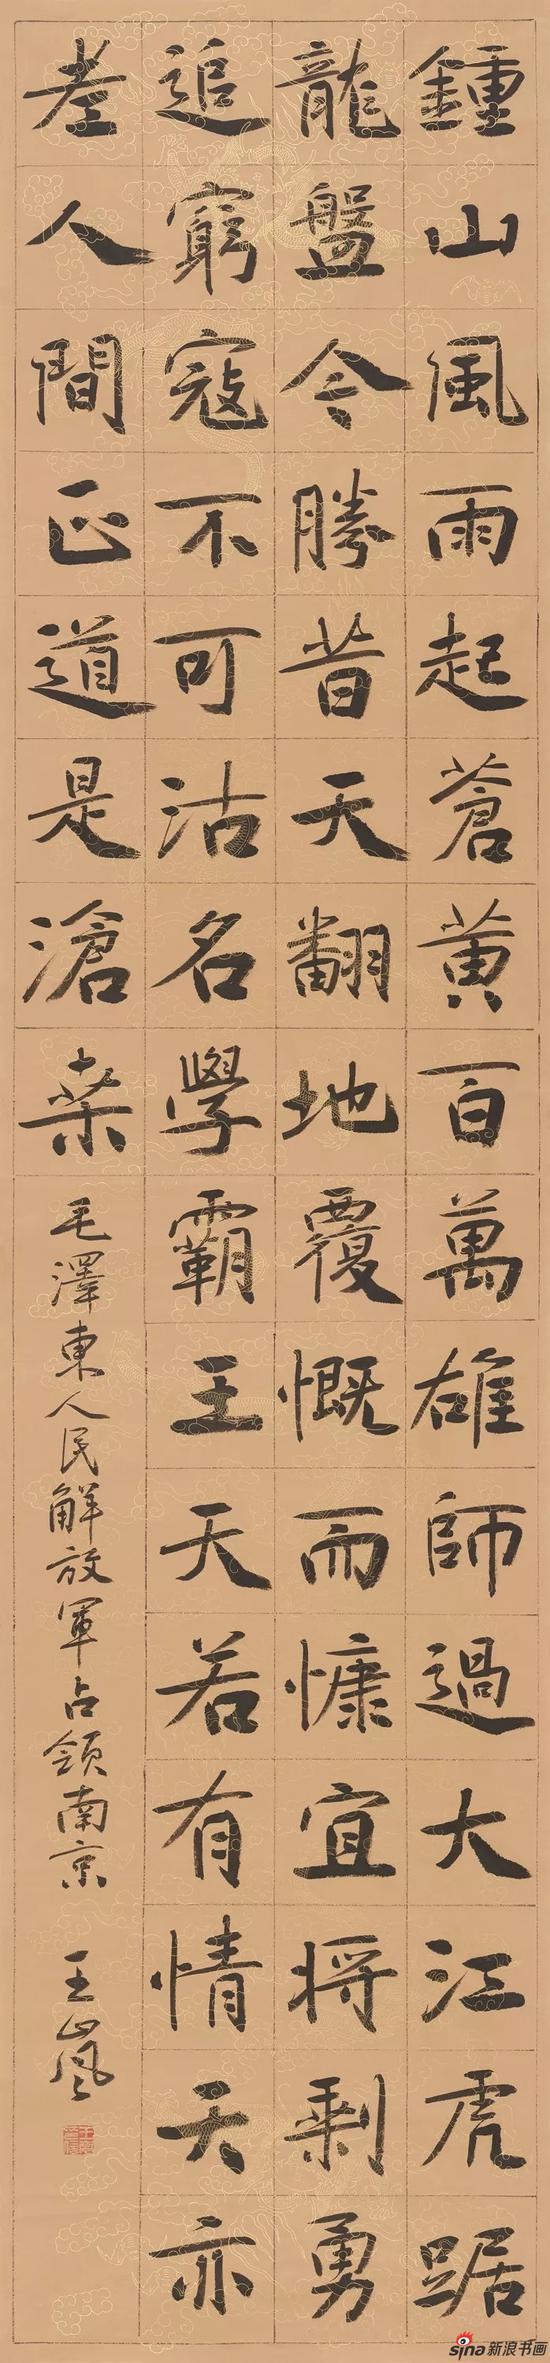 鍾山風雨起蒼黄百萬雄師過大江虎踞
龍盤今勝昔天翻地覆慨而慷宜将剩勇
追窮寇不可沽名學霸王天若有情天亦
老人間正道是滄桑
毛澤東人民解放軍占領南京 王嵐
sina新浪书画